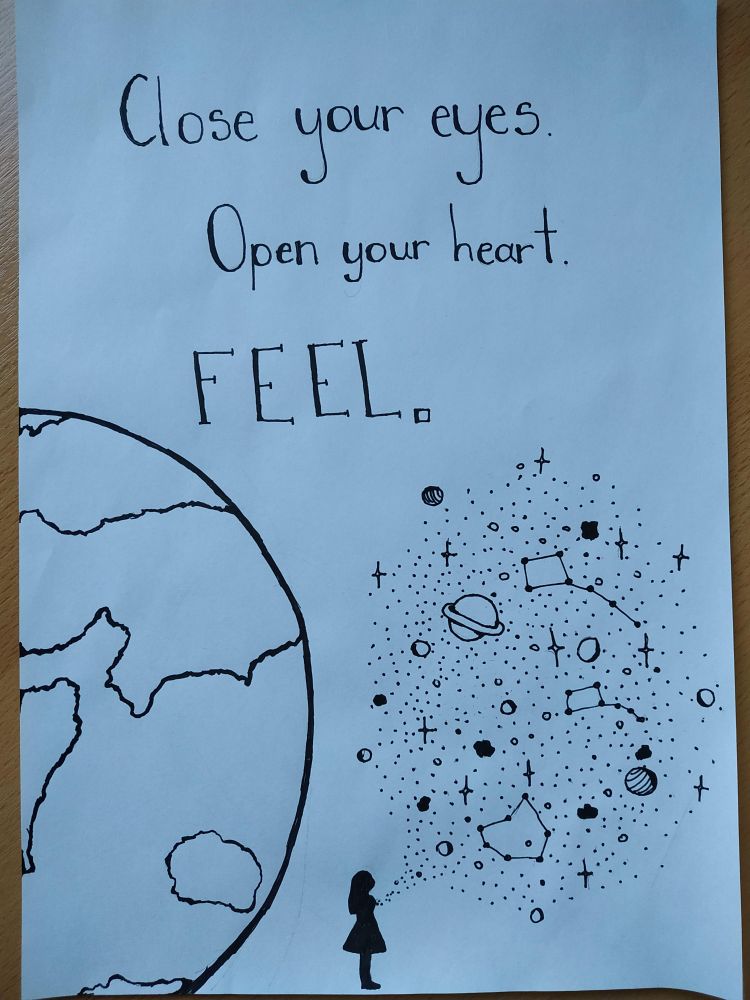 Close your eyes.
Open your heart.
FEEL.